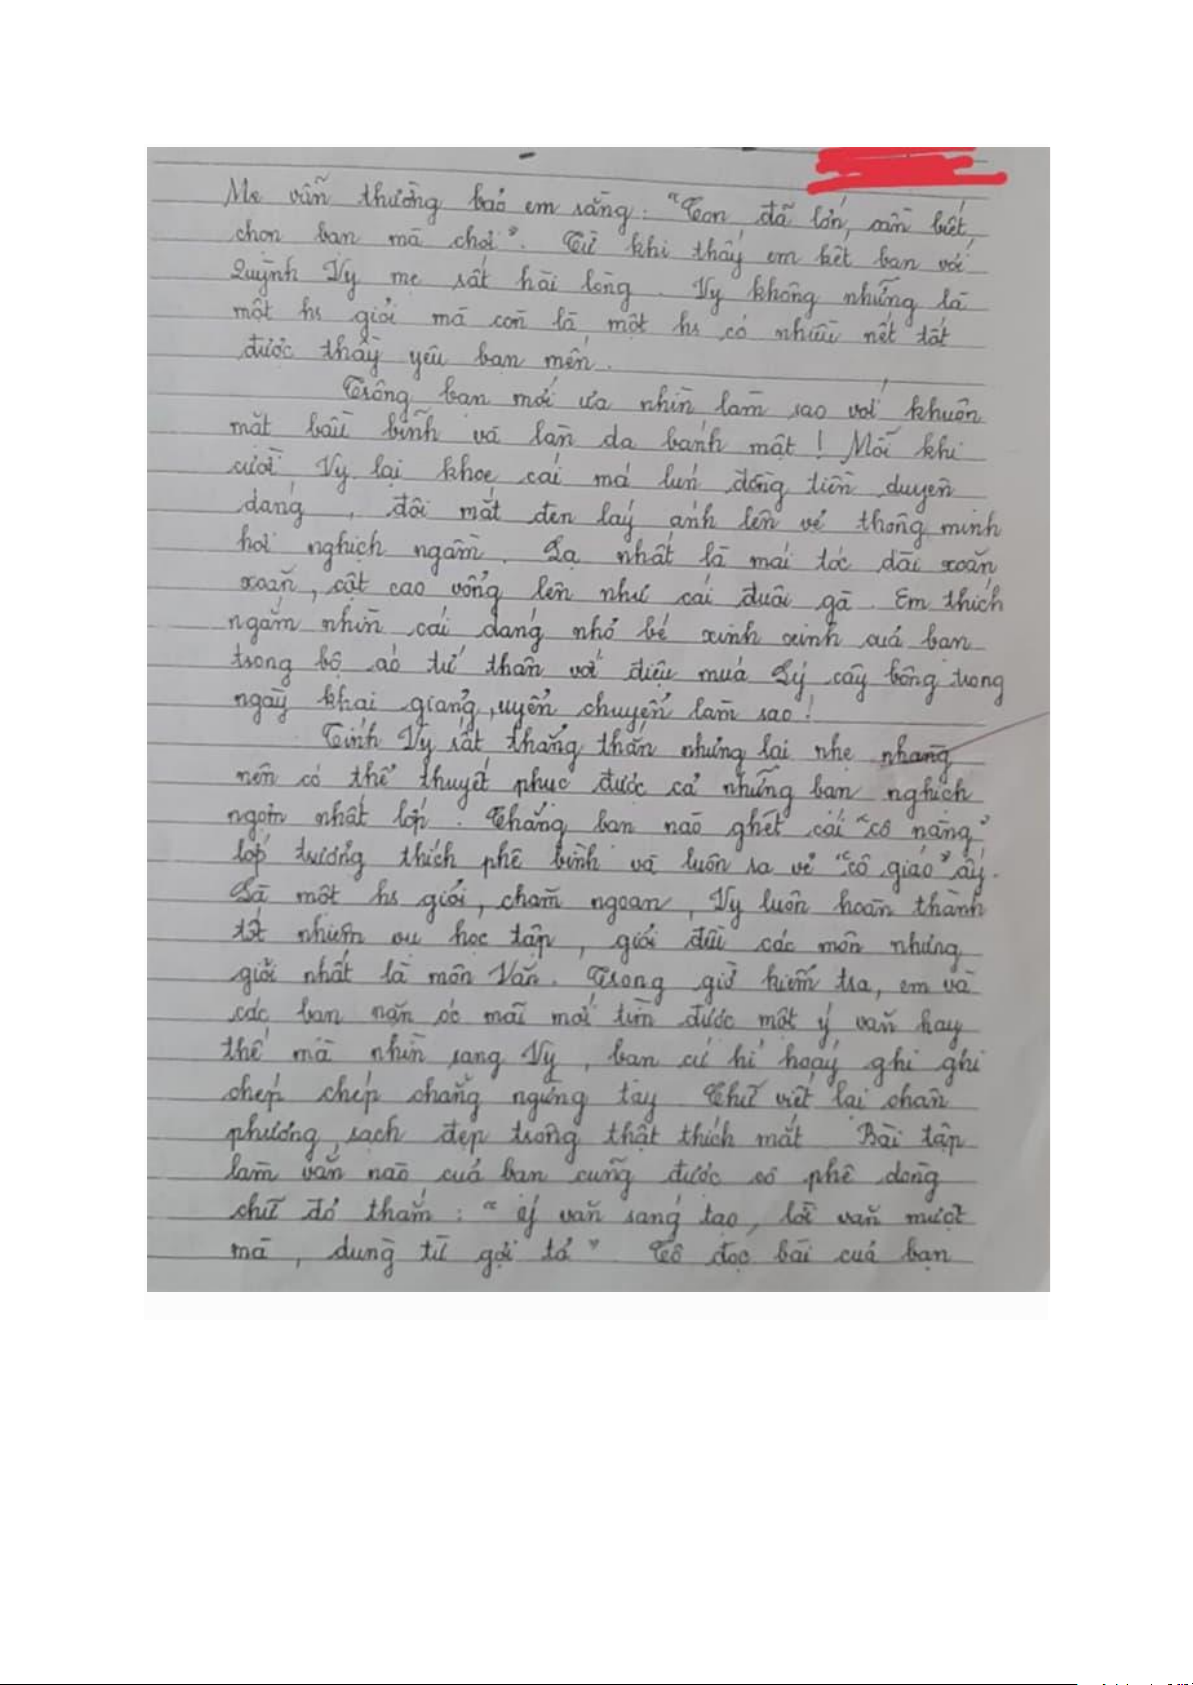 Mẹ vẫn thường bảo em rằng: "Con đã lớn, cần biết
chọn bạn mà chơi". Từ khi thấy em kết bạn với
Quỳnh Vy mẹ rất hài lòng. Vy không những là
một hs giỏi mà còn là một hs có nhiều nết tốt
được thầy yêu bạn mến.
Trông bạn mới ưa nhìn làm sao với khuôn
mặt bầu bĩnh và làn da bánh mật! Mỗi khi
cười Vy lại khoe cái má lún đồng tiền duyên
dáng, đôi mắt đen láy ánh lên vẻ thông minh
hơi nghịch ngầm. Lạ nhất là mái tóc dài xoăn
xoăn, cột cao vổng lên như cái đuôi gà. Em thích
ngắm nhìn cái dáng nhỏ bé xinh xinh của bạn
trong bộ áo tứ thân với điệu múa Lý cây bông trong
ngày khai giảng, uyển chuyển làm sao!
Tính Vy rất thẳng thắn nhưng lại nhẹ nhàng
nên có thể thuyết phục được cả những bạn nghịch
ngợm nhất lớp. Chẳng bạn nào ghét cái "cô nàng"
lớp trưởng thích phê bình và luôn ra vẻ "cô giáo" ấy.
Là một hs giỏi, chăm ngoan, Vy luôn hoàn thành
tốt nhiệm vụ học tập, giỏi đều các môn nhưng
giỏi nhất là môn Văn. Trong giờ kiểm tra, em và
các bạn nặn óc mãi mới tìm được một ý văn hay
thế mà nhìn sang Vy, bạn cứ hí hoáy ghi ghi
chép chép chẳng ngừng tay. Chữ viết lại chân
phương, sạch đẹp trông thật thích mắt. Bài tập
làm văn nào của bạn cũng được cô phê dòng
chữ đỏ thắm: "Ý văn sáng tạo, lời văn mượt
mà, dùng từ gợi tả". Cô đọc bài của bạn